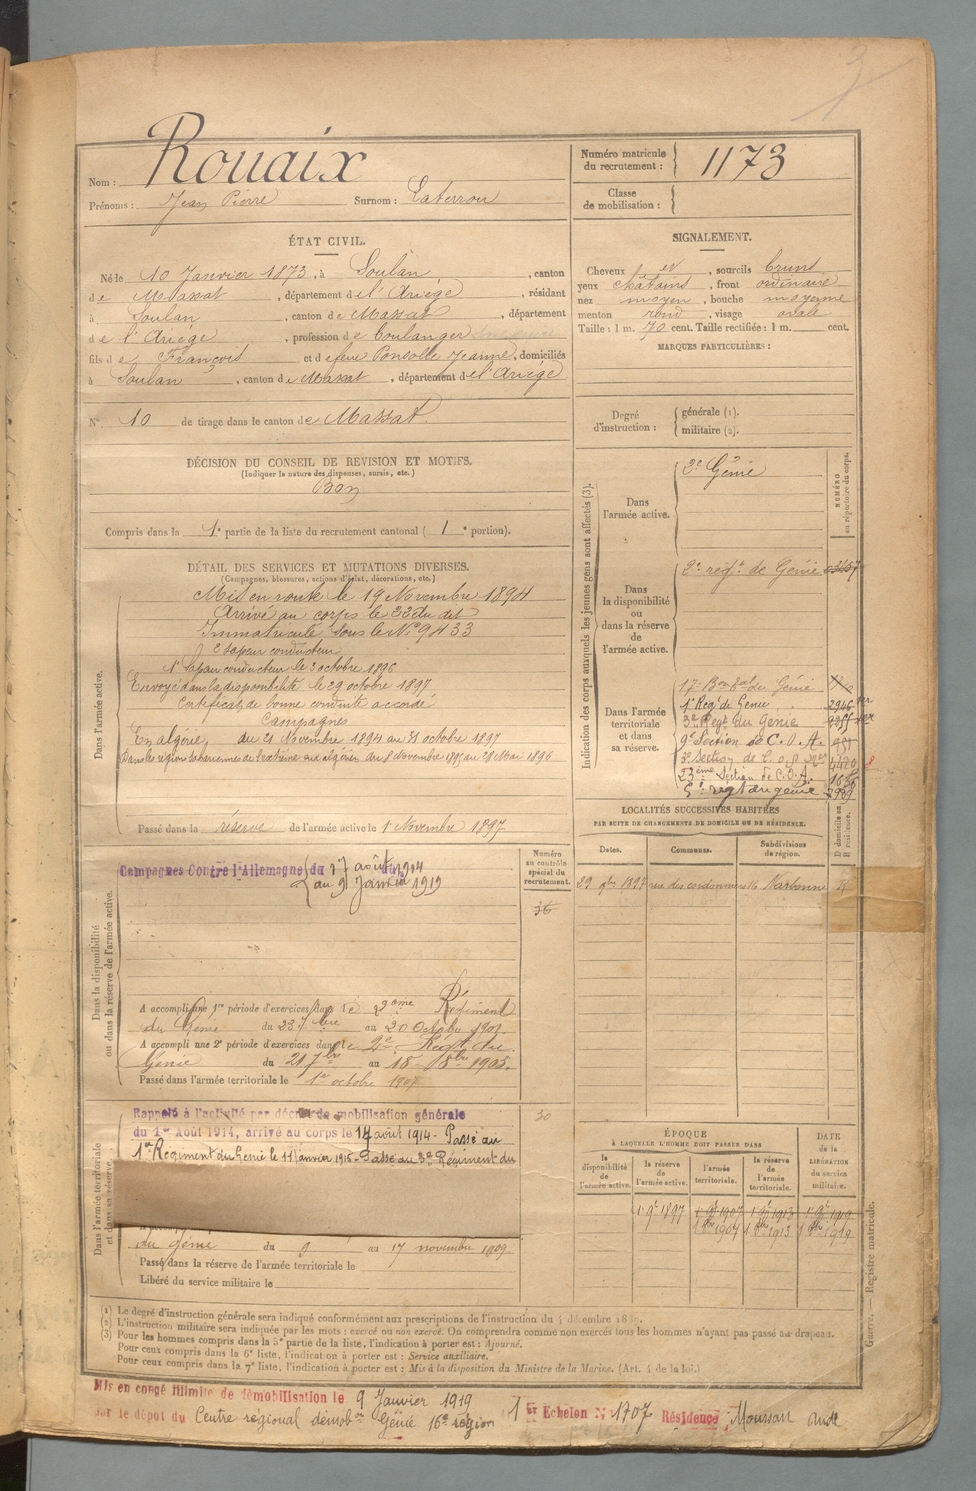 Nom : Rouaix
Prénoms : Jean Pierre Surnom : Laterrou
Numéro matricule du recrutement : 1173
Classe de mobilisation :
ÉTAT CIVIL.
Né le 10 Janvier 1873, à Soulan, canton
de Massat, département de l'Ariège, résidant
à Soulan, canton de Massat, département
de l'Ariège, profession de boulanger
fils de François et de feue Ponsolle Jeanne, domiciliés
à Soulan, canton de Massat, département de l'Ariège
N° 10 de tirage dans le canton de Massat
SIGNALEMENT.
Cheveux et, sourcils bruns
yeux chatains, front ordinaire
nez moyen, bouche moyenne
menton rond, visage ovale
Taille : 1 m. 70 cent. Taille rectifiée : 1 m. cent.
MARQUES PARTICULIÈRES :
Degré d'instruction : générale (1).
militaire (2).
DÉCISION DU CONSEIL DE REVISION ET MOTIFS.
(Indiquer la nature des dispenses, sursis, etc.)
Bon
Compris dans la 1e partie de la liste du recrutement cantonal (1e portion).
DÉTAIL DES SERVICES ET MUTATIONS DIVERSES.
(Campagnes, blessures, actions d'éclat, décorations, etc.)
Dans l'armée active.
Mis en route le 19 Novembre 1894
Arrivé au corps le 22 du dit
Immatriculé sous le N° 9433
2e Sapeur conducteur
1e Sapeur conducteur le 3 octobre 1896
Envoyé dans la disponibilité le 29 octobre 1897
Certificat de bonne conduite accordé
Campagnes
En algérie, du 21 Novembre 1894 au 31 octobre 1897
Passé dans la réserve de l'armée active le 1 Novembre 1897
Indication des corps auxquels les jeunes gens sont affectés (3).
NUMÉRO au répertoire du corps.
Dans l'armée active.
2e Génie
Dans la disponibilité ou dans la réserve de l'armée active.
2e regt de Génie
Dans l'armée territoriale et dans sa réserve.
17e Bon tal du Génie
1er Regt de Génie 2946
3e Regt du Génie
9e Section de C.O.A.
23ème Section de C.O.A.
5e regt du génie
LOCALITÉS SUCCESSIVES HABITÉES
PAR SUITE DE CHANGEMENTS DE DOMICILE OU DE RÉSIDENCE.
D domicile ou R résidence.
Dates. Communes. Subdivisions de région.
29 9bre 1897 rue des cordonniers 16 Narbonne R
Numéro au contrôle spécial du recrutement.
36
Dans la disponibilité ou dans la réserve de l'armée active.
Campagnes Contre l'Allemagne du 17 août 1914
au 9 Janvier 1919
A accompli une 1re période d'exercices dans le 2ème Régiment
du Génie du 23 7bre au 20 Octobre 1901.
A accompli une 2e période d'exercices dans le 2e Régt du
Génie du 21 7bre au 18 8bre 1903.
Passé dans l'armée territoriale le 1er octobre 1907
Dans l'armée territoriale et dans sa réserve
Rappelé à l'activité par décret de mobilisation générale
du 1er Août 1914, arrivé au corps le 17 août 1914 - Passé au
1er Regiment du Génie le 11 Janvier 1915 - Passé au 3e Régiment du
30
du Génie du 9 au 17 novembre 1909.
Passé dans la réserve de l'armée territoriale le
Libéré du service militaire le
ÉPOQUE
À LAQUELLE L'HOMME DOIT PASSER DANS
la disponibilité de l'armée active. la réserve de l'armée active. l'armée territoriale. la réserve de l'armée territoriale. DATE de la LIBÉRATION du service militaire.
1 9e 1897 1 9e 1907 1 9e 1913 1 9e 1919
1 8bre 1907 1 8bre 1913 1 8bre 1919
Guerre. — Registre matricule.
(1) Le degré d'instruction générale sera indiqué conformément aux prescriptions de l'instruction du 4 décembre 1889.
(2) L'instruction militaire sera indiquée par les mots : exercé ou non exercé. On comprendra comme non exercés tous les hommes n'ayant pas passé au drapeau.
(3) Pour les hommes compris dans la 5e partie de la liste, l'indication à porter est : Ajourné.
Pour ceux compris dans la 6e liste, l'indication à porter est : Service auxiliaire.
Pour ceux compris dans la 7e liste, l'indication à porter est : Mis à la disposition du Ministre de la Marine. (Art. 4 de la loi.)
Mis en congé illimité de démobilisation le 9 Janvier 1919
par le dépôt du Centre régional démobon Génie 16e région 1er Echelon N° 1707 Résidence Moussan Aude